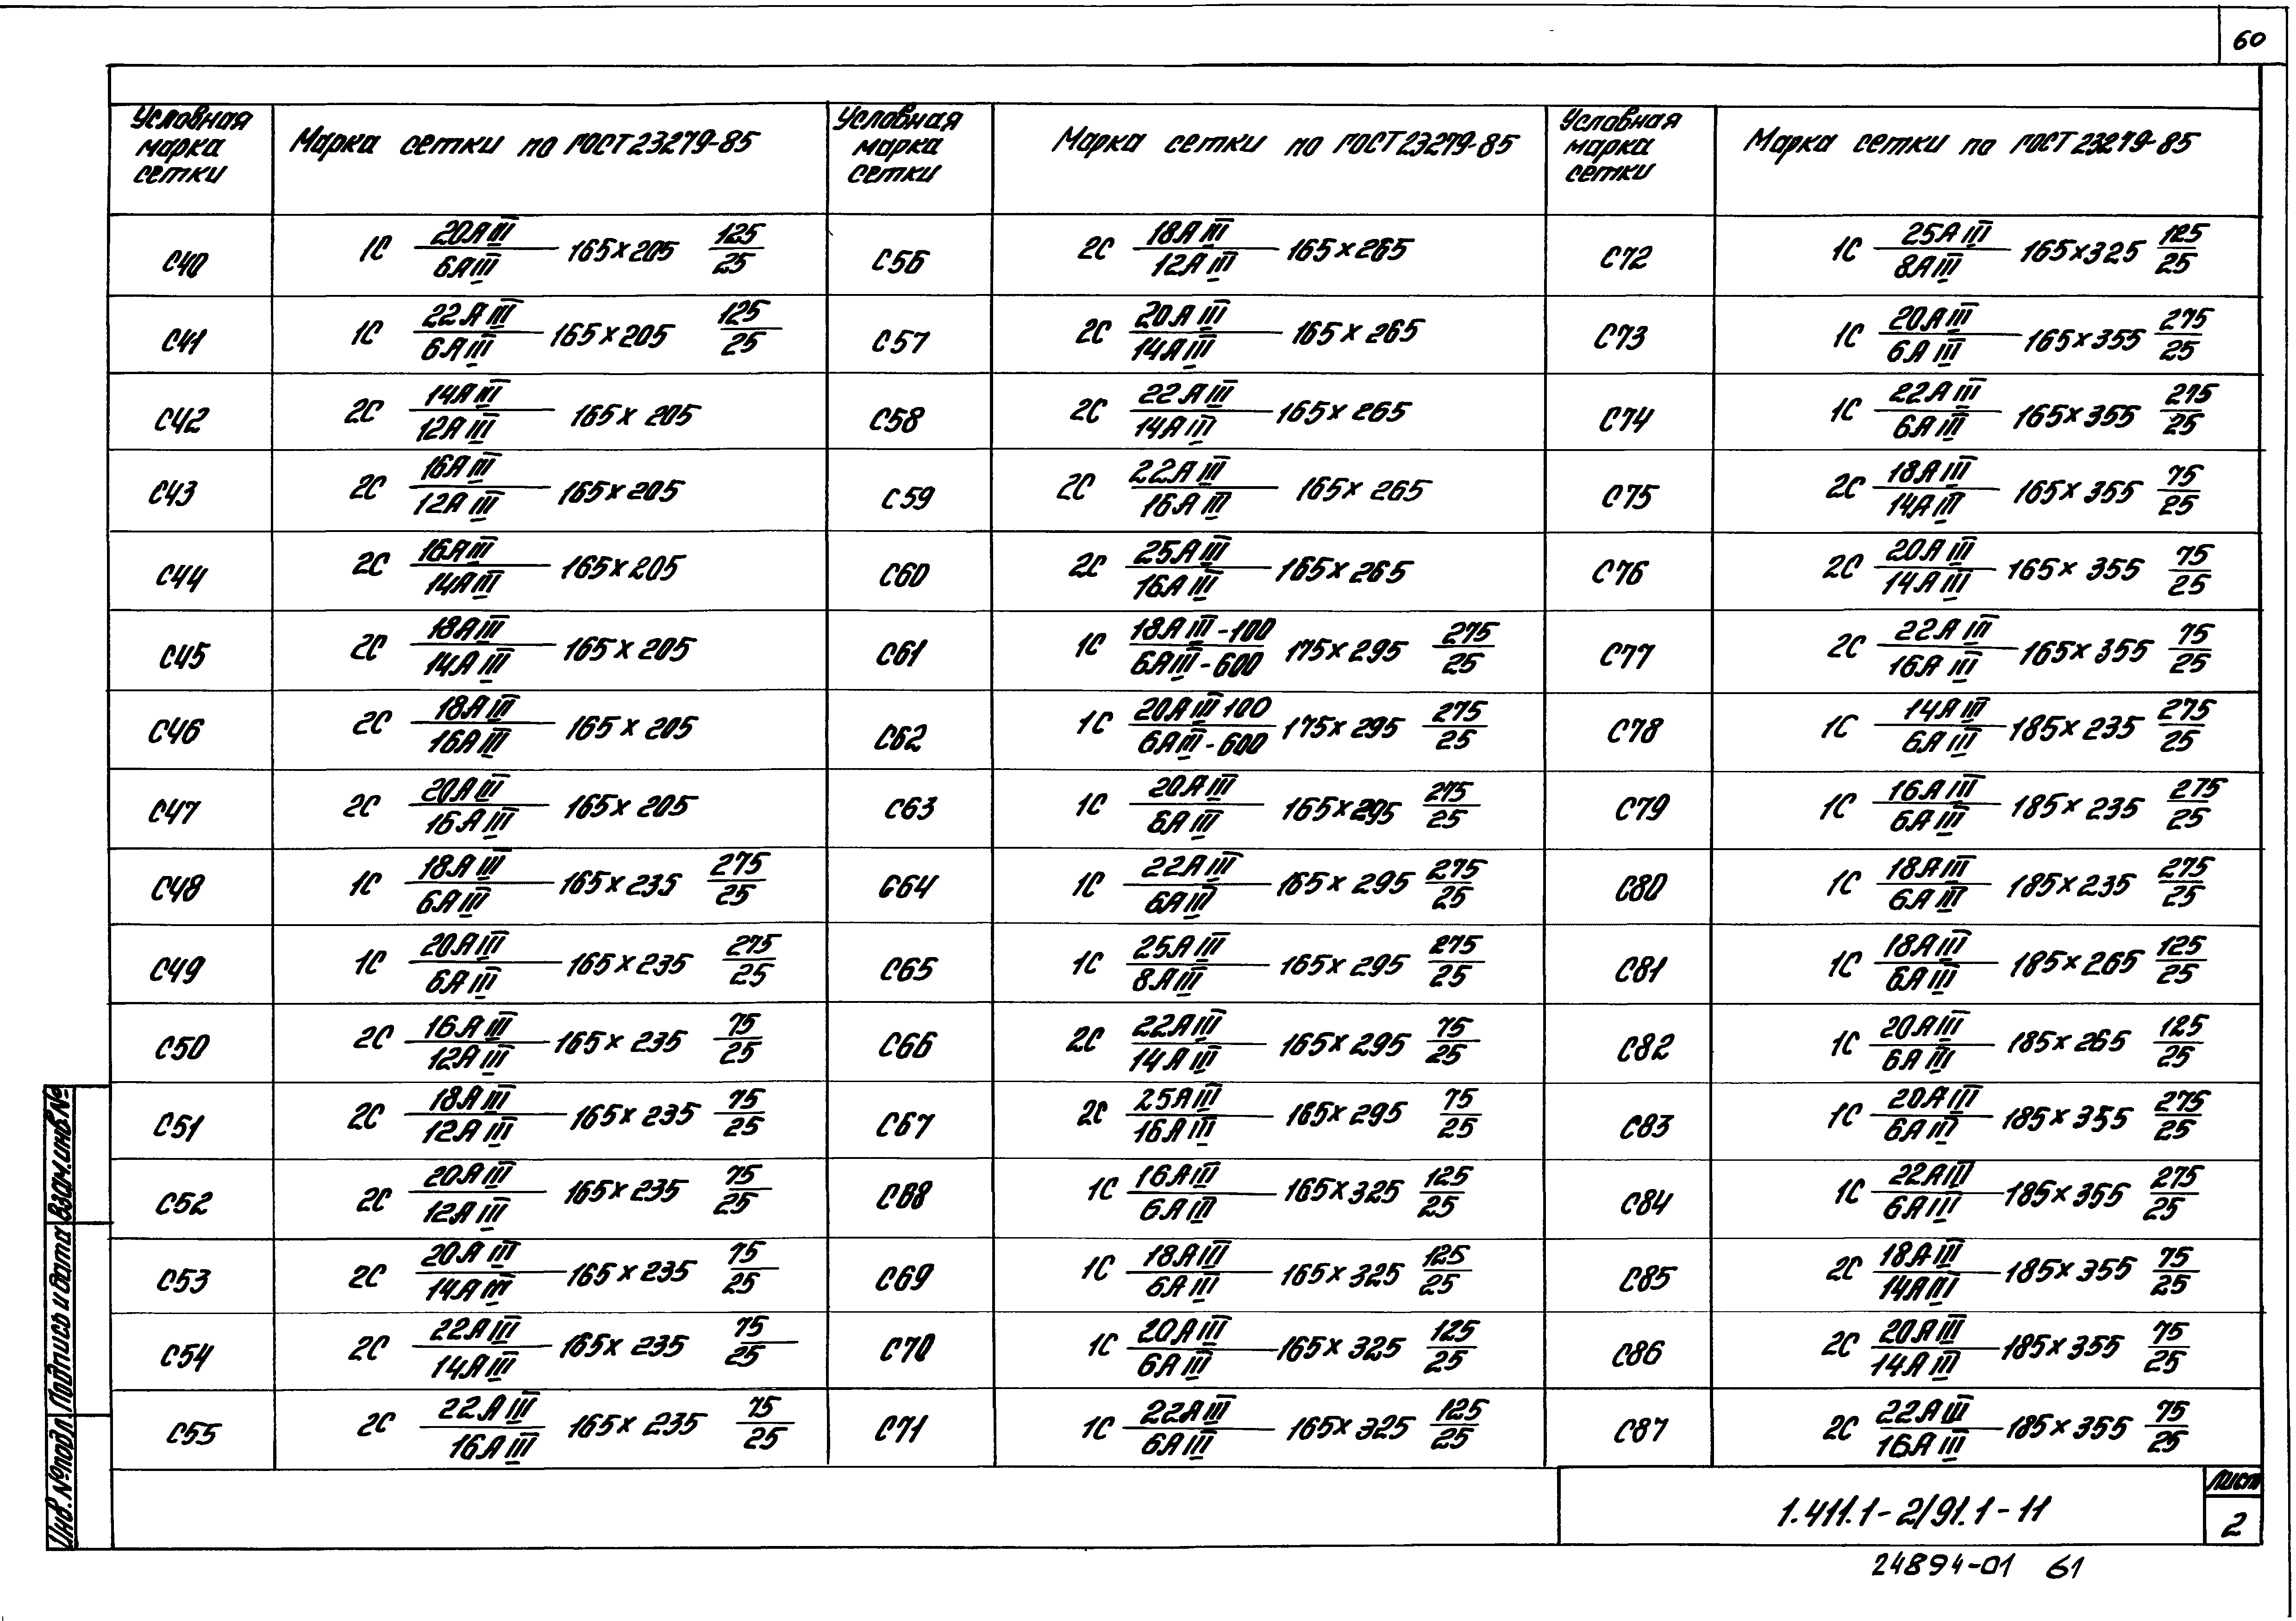 60
Условная марка сетки | Марка сетки по ГОСТ 23279-85 | Условная марка сетки | Марка сетки по ГОСТ 23279-85 | Условная марка сетки | Марка сетки по ГОСТ 23279-85
С40 | 1С 20АIII/6АIII 165×205 125/25 | С56 | 2С 18АIII/12АIII 165×265 | С72 | 1С 25АIII/8АIII 165×325 125/25
С41 | 1С 22АIII/6АIII 165×205 125/25 | С57 | 2С 20АIII/14АIII 165×265 | С73 | 1С 20АIII/6АIII 165×355 275/25
С42 | 2С 14АIII/12АIII 165×205 | С58 | 2С 22АIII/14АIII 165×265 | С74 | 1С 22АIII/6АIII 165×355 275/25
С43 | 2С 16АIII/12АIII 165×205 | С59 | 2С 22АIII/16АIII 165×265 | С75 | 2С 18АIII/14АIII 165×355 75/25
С44 | 2С 16АIII/14АIII 165×205 | С60 | 2С 25АIII/16АIII 165×265 | С76 | 2С 20АIII/14АIII 165×355 75/25
С45 | 2С 18АIII/14АIII 165×205 | С61 | 1С 18АIII-100/6АIII-600 175×295 275/25 | С77 | 2С 22АIII/16АIII 165×355 75/25
С46 | 2С 18АIII/16АIII 165×205 | С62 | 1С 20АIII 100/6АIII-600 175×295 275/25 | С78 | 1С 14АIII/6АIII 185×235 275/25
С47 | 2С 20АIII/16АIII 165×205 | С63 | 1С 20АIII/6АIII 165×295 275/25 | С79 | 1С 16АIII/6АIII 185×235 275/25
С48 | 1С 18АIII/6АIII 165×235 275/25 | С64 | 1С 22АIII/6АIII 165×295 275/25 | С80 | 1С 18АIII/6АIII 185×235 275/25
С49 | 1С 20АIII/6АIII 165×235 275/25 | С65 | 1С 25АIII/8АIII 165×295 275/25 | С81 | 1С 18АIII/6АIII 185×265 125/25
С50 | 2С 16АIII/12АIII 165×235 75/25 | С66 | 2С 22АIII/14АIII 165×295 75/25 | С82 | 1С 20АIII/6АIII 185×265 125/25
С51 | 2С 18АIII/12АIII 165×235 75/25 | С67 | 2С 25АIII/16АIII 165×295 75/25 | С83 | 1С 20АIII/6АIII 185×355 275/25
С52 | 2С 20АIII/12АIII 165×235 75/25 | С68 | 1С 16АIII/6АIII 165×325 125/25 | С84 | 1С 22АIII/6АIII 185×355 275/25
С53 | 2С 20АIII/14АIII 165×235 75/25 | С69 | 1С 18АIII/6АIII 165×325 125/25 | С85 | 2С 18АIII/14АIII 185×355 75/25
С54 | 2С 22АIII/14АIII 165×235 75/25 | С70 | 1С 20АIII/6АIII 165×325 125/25 | С86 | 2С 20АIII/14АIII 185×355 75/25
С55 | 2С 22АIII/16АIII 165×235 75/25 | С71 | 1С 22АIII/6АIII 165×325 125/25 | С87 | 2С 22АIII/16АIII 185×355 75/25
Инв. № подл. Подпись и дата Взам.инв.№
1.411.1-2/91.1-11
Лист
2
24894-01 61